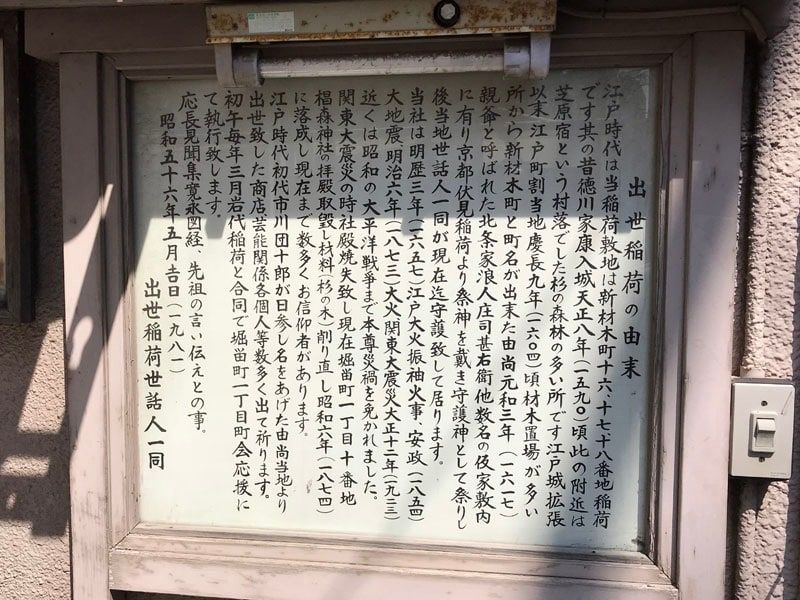 出世稲荷の由末
江戸時代は当稲荷敷地は新材木町十六、十七十八番地稲荷
です其の昔徳川家康入城天正八年(一五九〇)頃此の附近は
芝原宿という村落でした杉の森林の多い所です江戸城拡張
以末江戸町割当地慶長九年(一六〇四)頃材木置場が多い
所から新材木町と町名が出末た由尚元和三年(一六一七)
親爺と呼ばれた北条家浪人庄司甚右衛他数名の仮家敷内
に有り京都伏見稲荷より祭神を戴き守護神として祭りし
後当地世話人一同が現在迄守護致して居ります。
当社は明暦三年(一六五七)江戸大火振袖火事、安政(一八五四)
大地震明治六年(一八七三)大火関東大震災大正十二年(一九二三)
近くは昭和の大平洋戦争まで本尊災禍を免かれました。
関東大震災の時社殿焼失致し現在堀留町一丁目十番地
椙森神社の拝殿取毀し材料(杉の木)削り直し昭和六年(一八七四)
に落成し現在まで数多くお信仰者があります。
江戸時代初代市川団十郎が日参し名をあげた由尚当地より
出世致した商店芸能関係各個人等数多く出て祈ります。
初午毎年三月岩代稲荷と合同で堀留町一丁目町会応援に
て執行致します。
応長見聞集寛永図経、先祖の言い伝えとの事。
昭和五十六年五月吉日(一九八一)
出世稲荷世話人一同